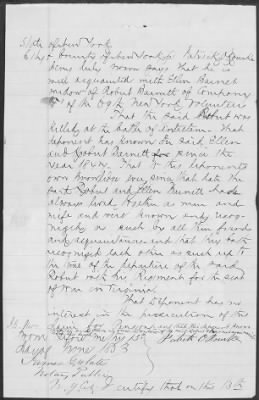 State of New York
City & County of New York ss Patrick O'Rourke
being duly sworn says that he is
well acquainted with Ellen Barnet
widow of Robert Barnett of Company
of the New York Volunteers
That the said Robert was
killed at the battle of Antietam. That
deponent has known the said Ellen
and Robert Barnett since the
year 1842. That of the deponents
own knowledge since that date the
said Robert and Ellen Burnett have
always lived together as man and
wife and were known and recog-
nized as such by all their friends
and acquaintances and that they both
recognized each other as such up to
the time of the departure of the said
Robert with his Regiment for the seat
of War in Virginia.
That Deponent has no
interest in the prosecution of the
Sworn before me this 15th
day of June 1863
Patrick O'Rourke
James
Notary Public
N.Y. City I certify that on this 13th